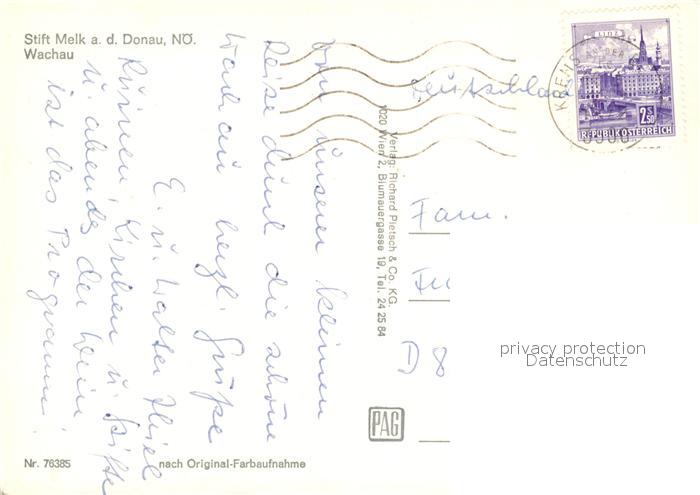 Stift Melk a. d. Donau, NÖ.
Wachau
Von unserer kleinen
Reise durch die schöne
Wachau herzl. Grüße
E. u. Walter Thiel
Ruinen, Kirchen u. Stifte
u. abends der Wein
ist das Programm!
Verlag: Richard Pietsch & Co. KG.
1020 Wien 2, Blumauergasse 19, Tel. 24 25 84
LINZ
2.50
REPUBLIK ÖSTERREICH
KREMS
Deutschland
Fam.
D 8
privacy protection
Datenschutz
PAG
Nr. 76385
nach Original-Farbaufnahme